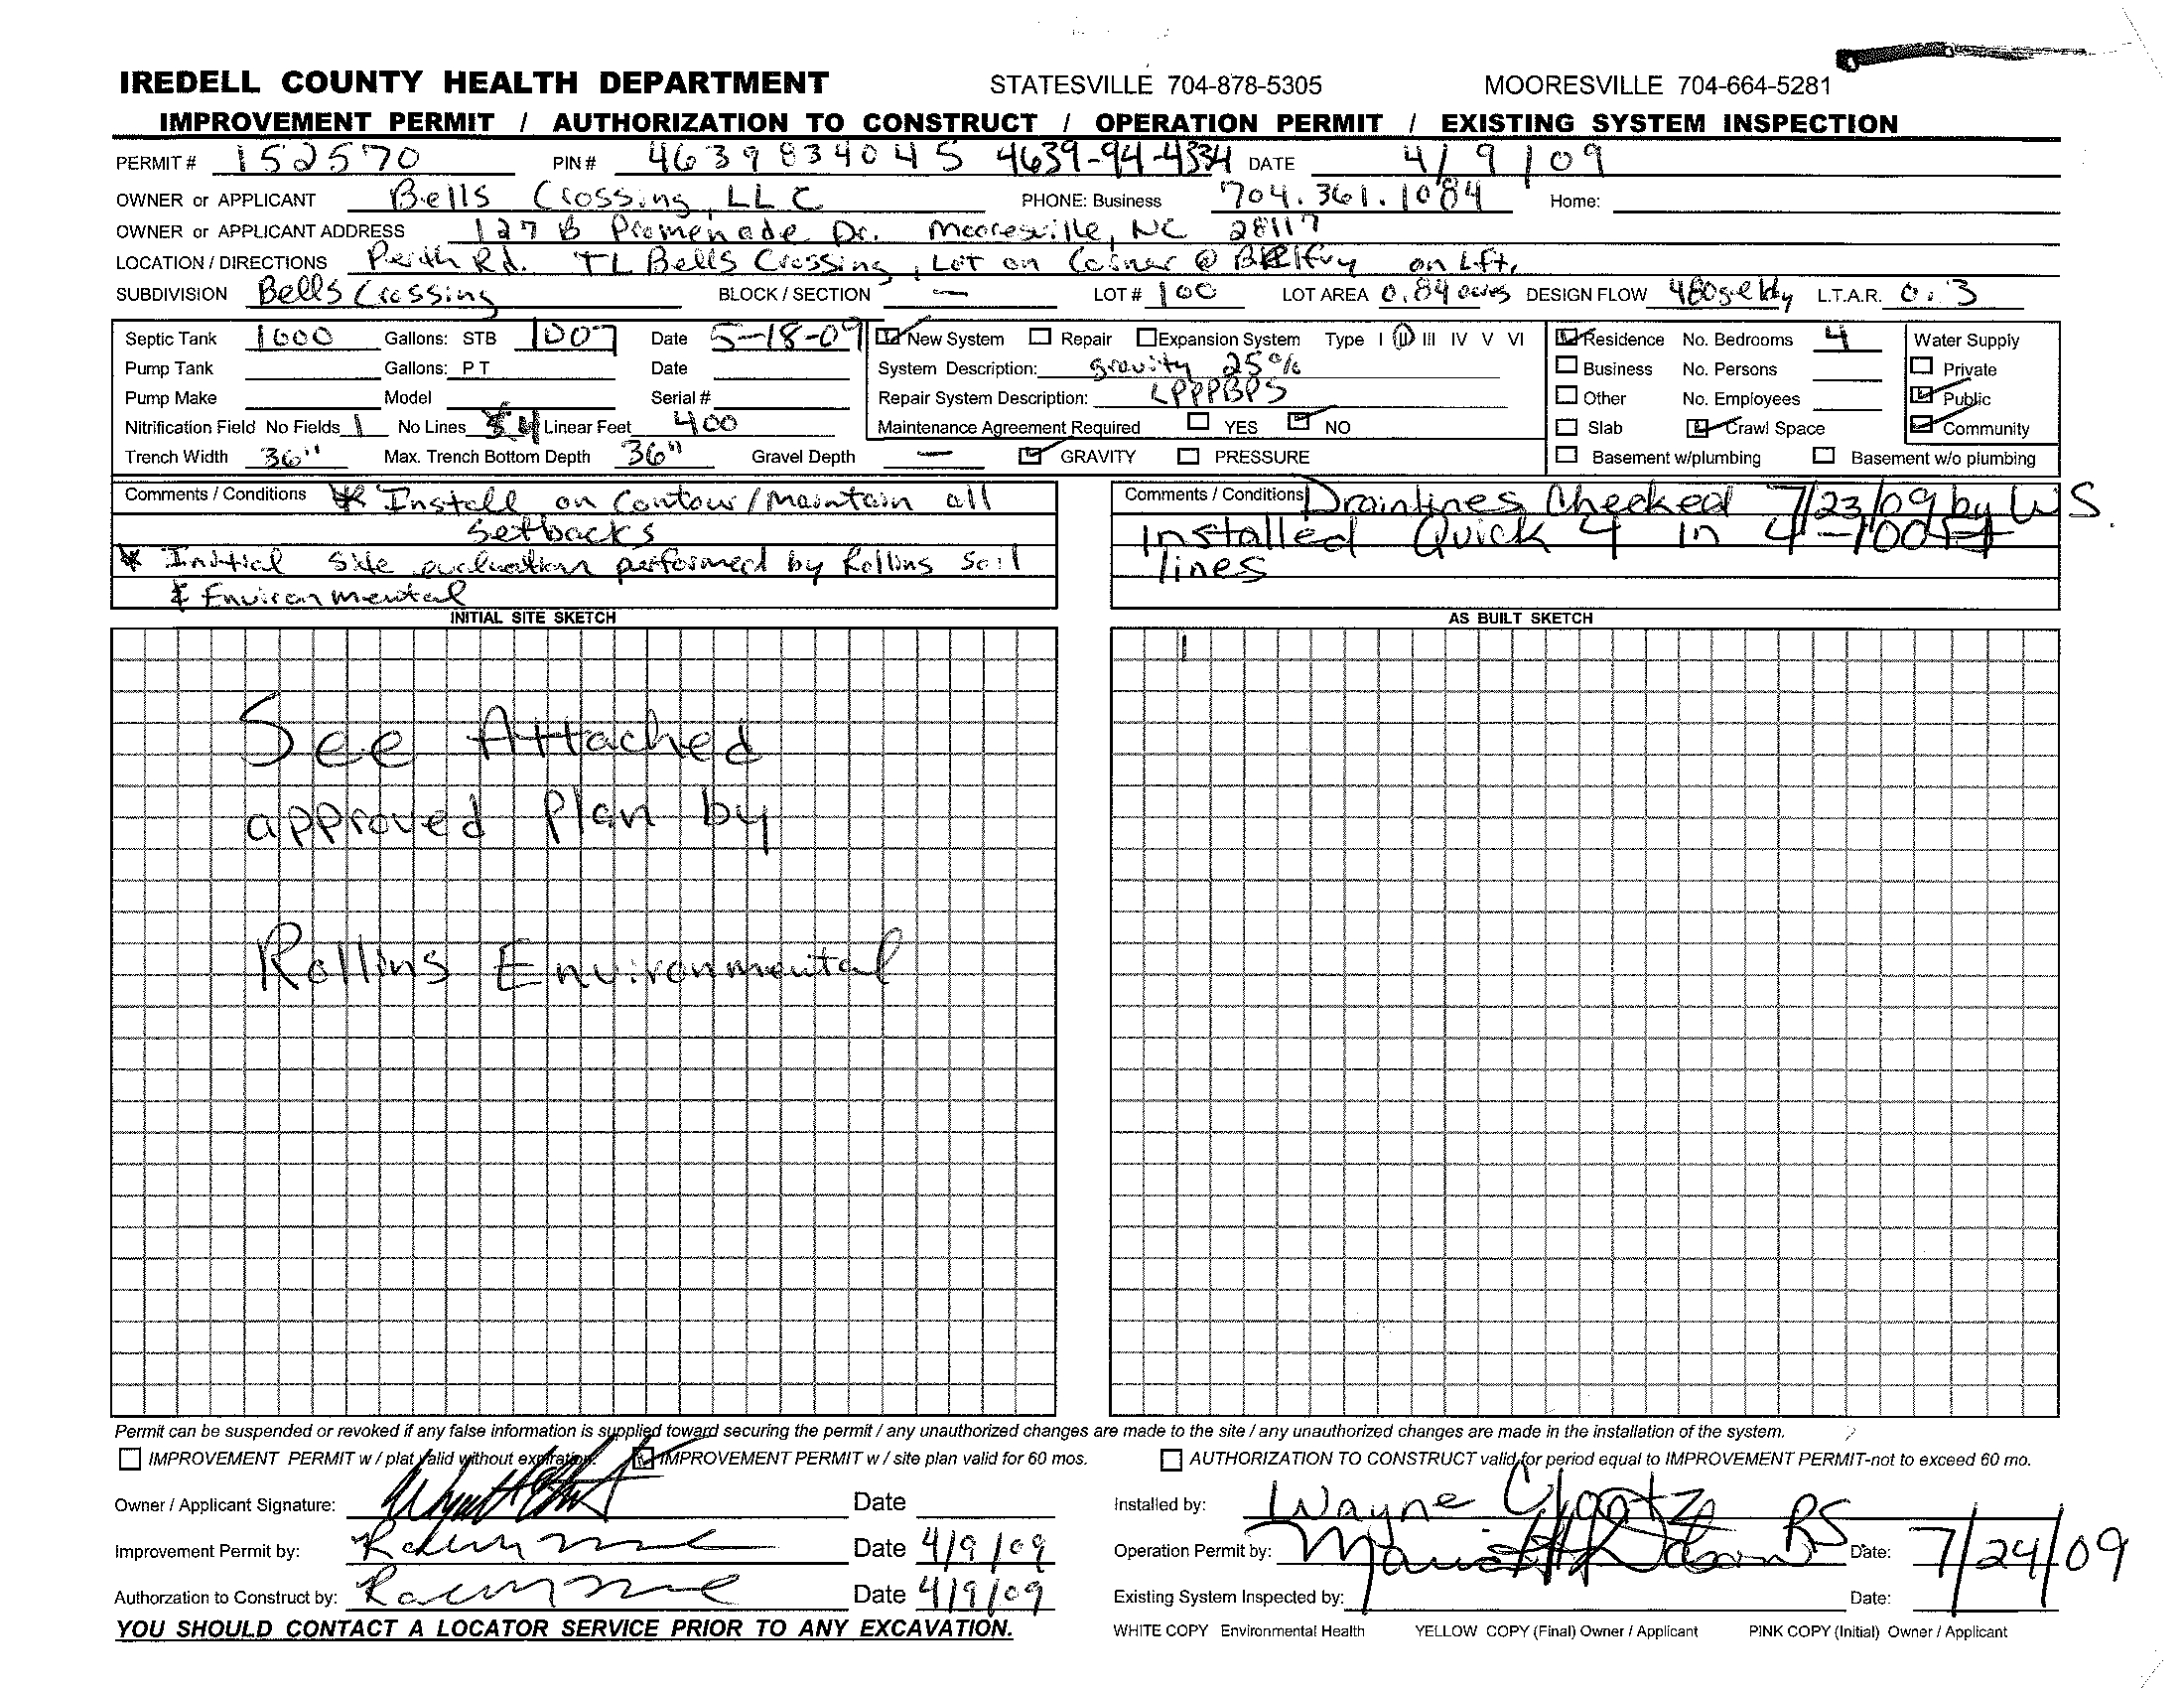 IREDELL COUNTY HEALTH DEPARTMENT STATESVILLE 704-878-5305 MOORESVILLE 704-664-5281
IMPROVEMENT PERMIT / AUTHORIZATION TO CONSTRUCT / OPERATION PERMIT / EXISTING SYSTEM INSPECTION
PERMIT # 152570 PIN # 4639834045 4639-94-4334 DATE 4/9/09
OWNER or APPLICANT Bells Crossing, LLC PHONE: Business 704.361.1084 Home:
OWNER or APPLICANT ADDRESS 127 B Promenade Dr. Mooresville, NC 28117
LOCATION / DIRECTIONS Perth Rd. TL Bells Crossing, Lot on Corner @ on Lft.
SUBDIVISION Bells Crossing BLOCK / SECTION — LOT # 100 LOT AREA 0.84 acres DESIGN FLOW 480 gal/day L.T.A.R. 0.3
Septic Tank 1000 Gallons: STB 1007 Date 5-18-09 New System Repair Expansion System Type I II III IV V VI Residence No. Bedrooms 4 Water Supply
Pump Tank Gallons: PT Date System Description: gravity 25% Business No. Persons Private
Pump Make Model Serial # Repair System Description: LPPPBPS Other No. Employees Public
Nitrification Field No Fields 1 No Lines 4 Linear Feet 400 Maintenance Agreement Required YES NO Slab Crawl Space Community
Trench Width 36" Max. Trench Bottom Depth 36" Gravel Depth — GRAVITY PRESSURE Basement w/plumbing Basement w/o plumbing
Comments / Conditions * Install on Contour / Maintain all
setbacks
* Initial site evaluation performed by Rollins Soil
& Environmental
Comments / Conditions Drainlines Checked 7/23/09 by WS.
Installed Quick 4 in 4-100ft
lines
INITIAL SITE SKETCH AS BUILT SKETCH
See Attached
approved plan by
Rollins Environmental
Permit can be suspended or revoked if any false information is supplied toward securing the permit / any unauthorized changes are made to the site / any unauthorized changes are made in the installation of the system.
IMPROVEMENT PERMIT w / plat valid without expiration. IMPROVEMENT PERMIT w / site plan valid for 60 mos. AUTHORIZATION TO CONSTRUCT valid for period equal to IMPROVEMENT PERMIT-not to exceed 60 mo.
Owner / Applicant Signature: Date Installed by: Wayne
Improvement Permit by: Date 4/9/09 Operation Permit by: RS Date: 7/24/09
Authorzation to Construct by: Date 4/9/09 Existing System Inspected by: Date:
YOU SHOULD CONTACT A LOCATOR SERVICE PRIOR TO ANY EXCAVATION. WHITE COPY Environmental Health YELLOW COPY (Final) Owner / Applicant PINK COPY (Initial) Owner / Applicant